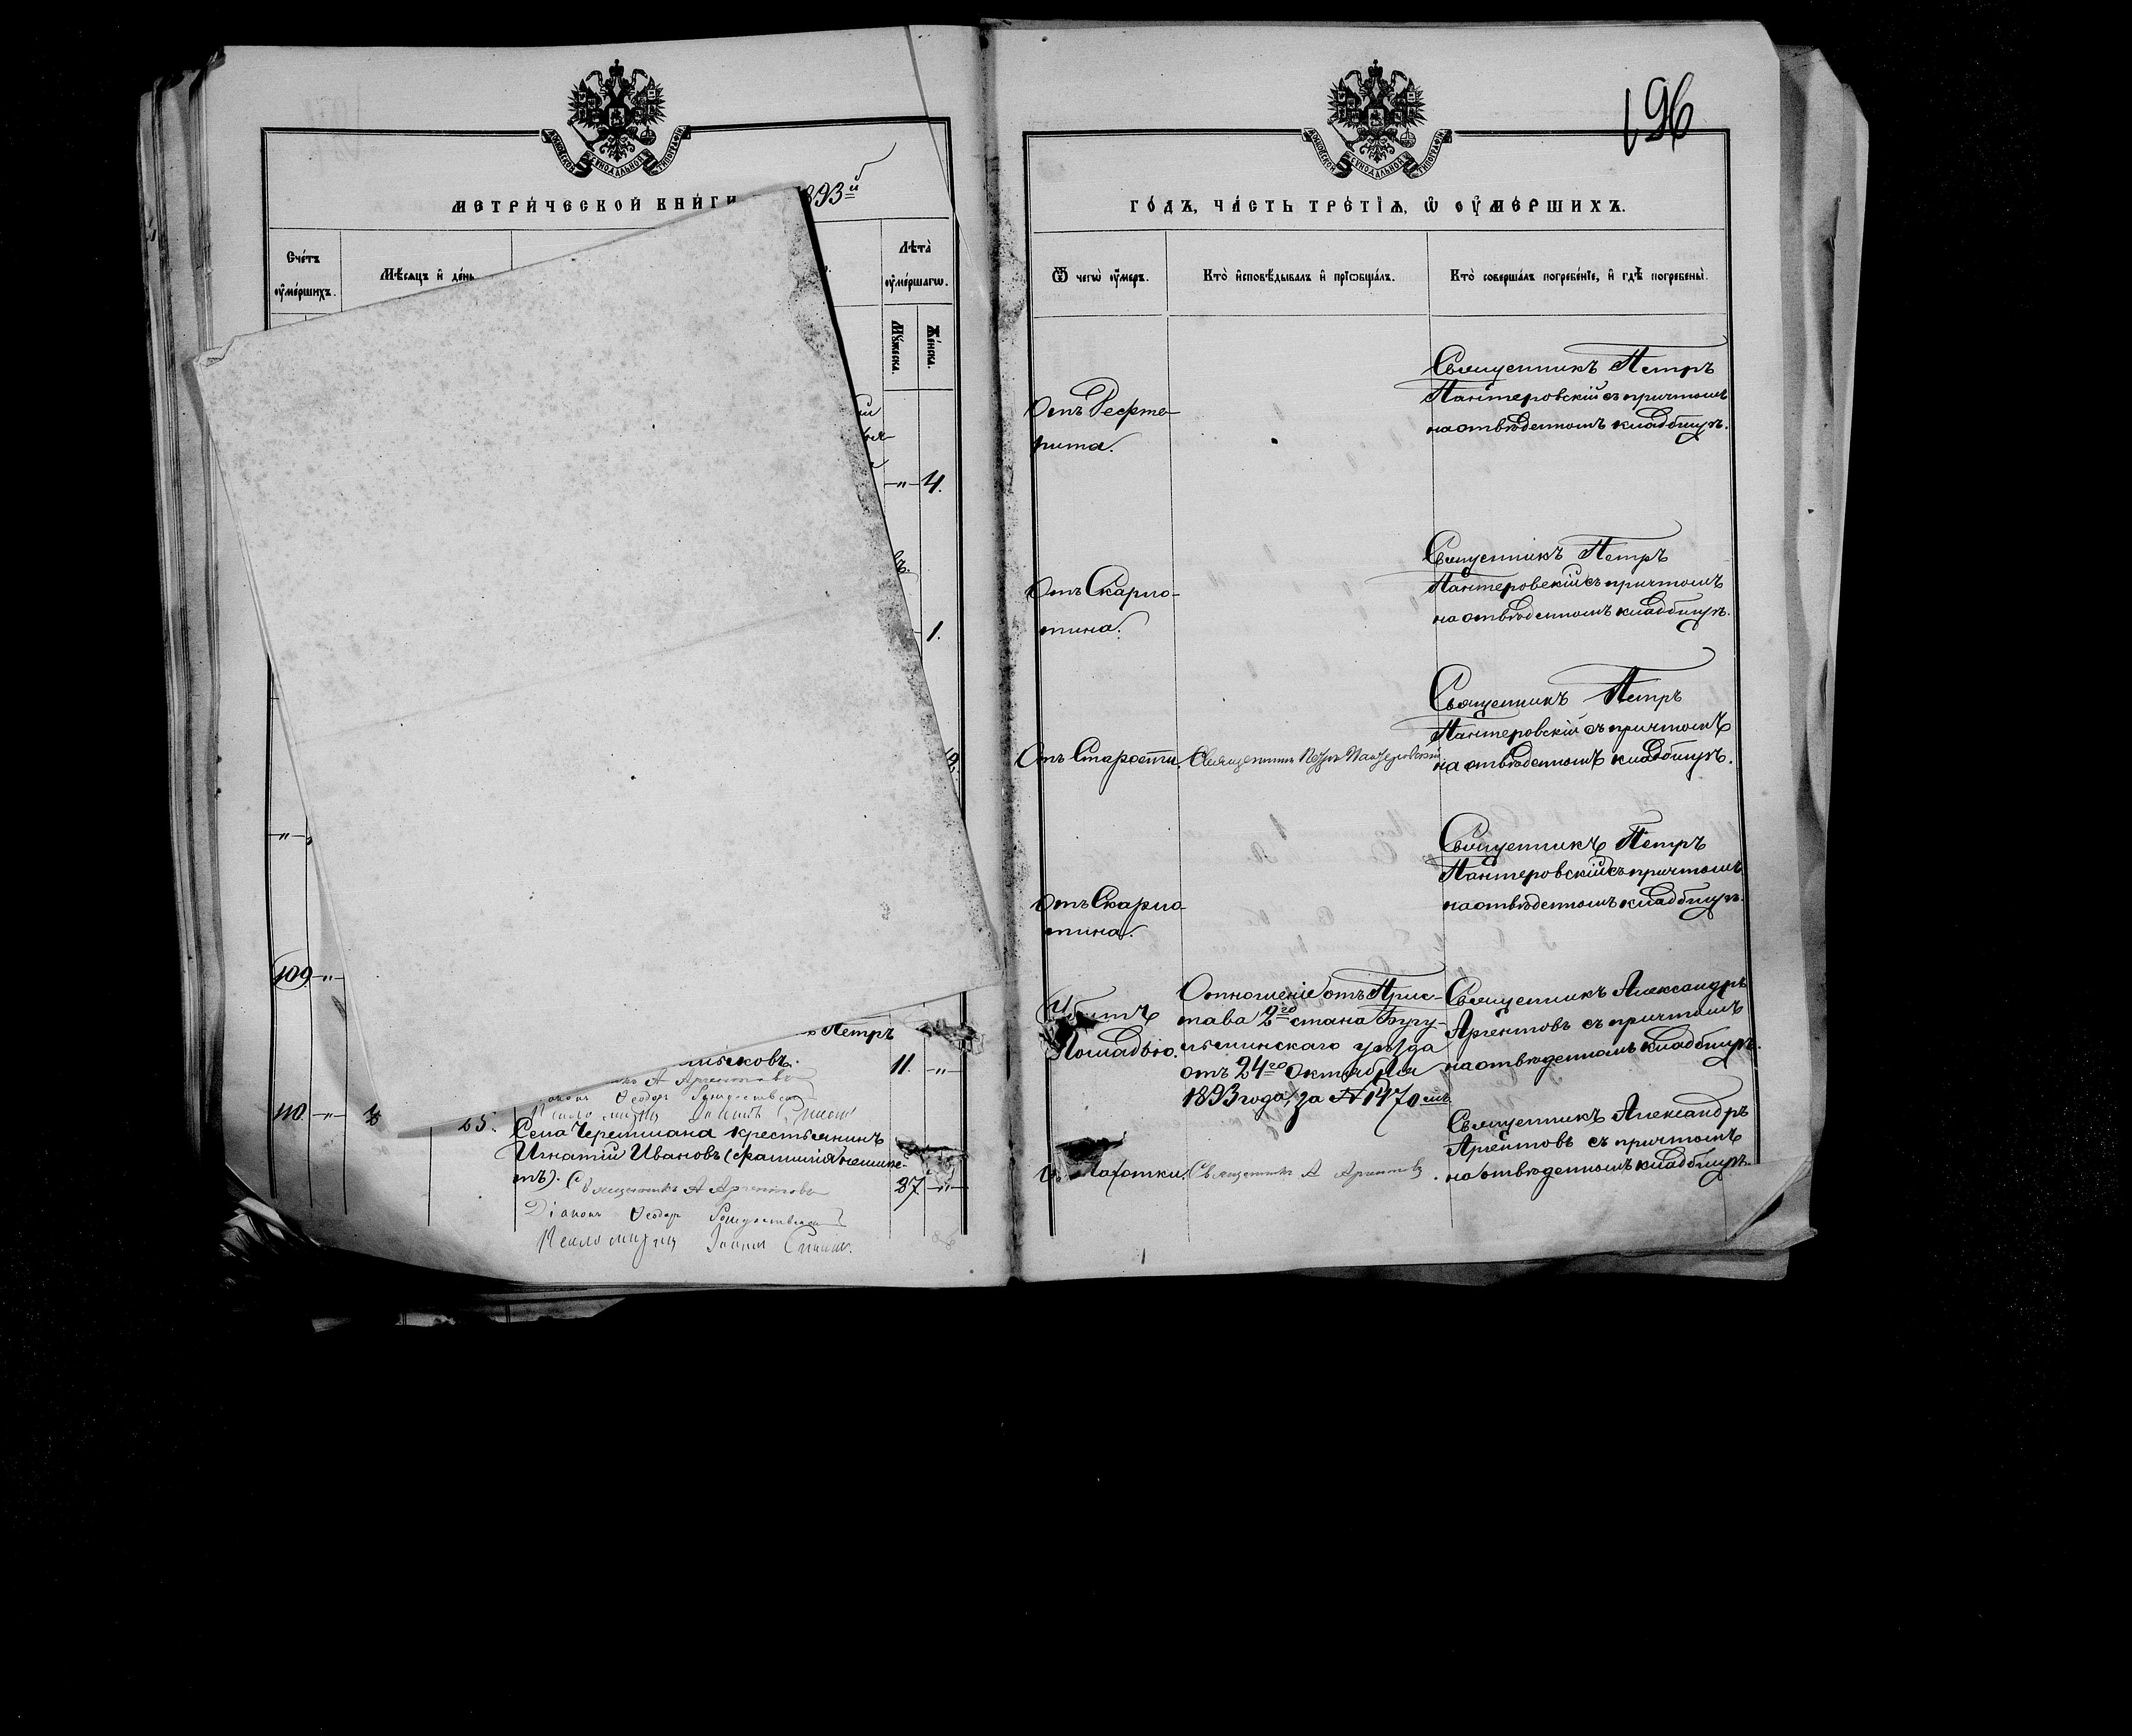 МОСКОВСКОЙ СУНОДАЛЬНОЙ ТИПОГРАФІИ
МЕТРИ́ЧЕСКОЙ КНИ́ГИ 893й
Сче́тъ оу҆ме́ршихъ.
Мѣ́сяцъ и҆ де́нь
Лѣта̀ оу҆ме́ршагѡ.
Мꙋ́жеска.
Же́нска.
4.
1.
109
Петръ
11.
110.
25.
Села Черемшана крестьянинъ
Игнатій Ивановъ (фамиліи неимѣе-
тъ). Священникъ А Аргентовъ
37
Діаконъ Ѳеодоръ
Псаломщик
196
МОСКОВСКОЙ СУНОДАЛЬНОЙ ТИПОГРАФІИ
ГО́ДЪ, ЧА́СТЬ ТРЕ́ТІѦ, Ѡ҆ ОУ҆МЕ́РШИХЪ.
Ѿ чегѡ̀ оу҆́меръ.
Кто̀ и҆сповѣ́дывалъ и҆ прїѡбща́лъ.
Кто̀ соверша́лъ погребе́нїе, и҆ гдѣ̀ погребены̀.
Отъ Дифте-
рита.
Священникъ Петръ
Пантеровскій съ причтомъ
на отвѣденномъ кладбищѣ.
Отъ Скарла-
тина.
Священникъ Петръ
Пантеровскій съ причтомъ
на отвѣденномъ кладбищѣ.
Отъ Старости.
Священникъ Петръ Пантеровскій
Священникъ Петръ
Пантеровскій съ причтомъ
на отвѣденномъ кладбищѣ.
Отъ Скарла-
тина.
Священникъ Петръ
Пантеровскій съ причтомъ
на отвѣденномъ кладбищѣ.
Лошадью.
Отношеніе отъ Прис-
тава 2го стана Бугу-
льминскаго уѣзда
отъ 24го Октября
1893 года, за № 1470
Священникъ Александръ
Аргентовъ съ причтомъ
на отведенномъ кладбищѣ.
Чахотки.
Священникъ А Аргентовъ
Священникъ Александръ
Аргентовъ съ причтомъ
на отведенномъ кладбищѣ.